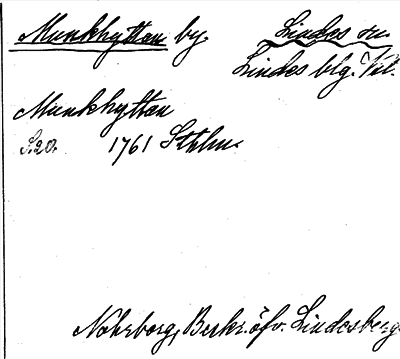 Munkhyttan by. Lindes sn.
Lindes blg. Vstl.
Munkhyttan
S.20. 1761 Sthlm.
Nohrborg, Beskr. öfv. Lindesberg